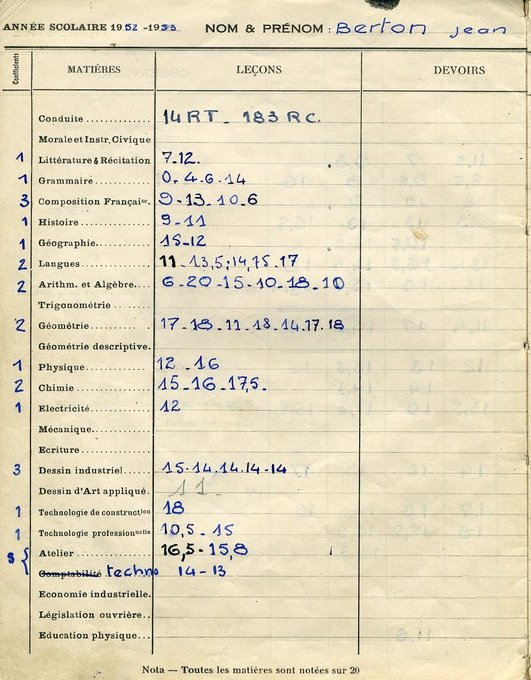 ANNÉE SCOLAIRE 1952-1953 NOM & PRÉNOM : Berton Jean
Coefficients MATIÈRES LEÇONS DEVOIRS
Conduite 14 RT - 183 RC.
Morale et Instr. Civique
1 Littérature & Récitation 7-12.
1 Grammaire 0. 4-6-14
3 Composition Française. 9-13-10.6
1 Histoire 9-11
1 Géographie 15-12
2 Langues 11 - 13,5; 14,75 - 17
2 Arithm. et Algèbre 6-20-15-10-18-10
Trigonométrie
2 Géométrie 17-18-11-18-14.17.18
Géométrie descriptive.
1 Physique 12 - 16
2 Chimie 15-16-17,5.
1 Electricité 12
Mécanique
Ecriture
3 Dessin industriel 15-14.14.14-14
Dessin d'Art appliqué. 11
1 Technologie de construction 18
1 Technologie professionnelle 10,5 - 15
5 { Atelier 16,5 - 15,8
Comptabilité techno 14-13
Economie industrielle.
Législation ouvrière
Education physique
Nota — Toutes les matières sont notées sur 20